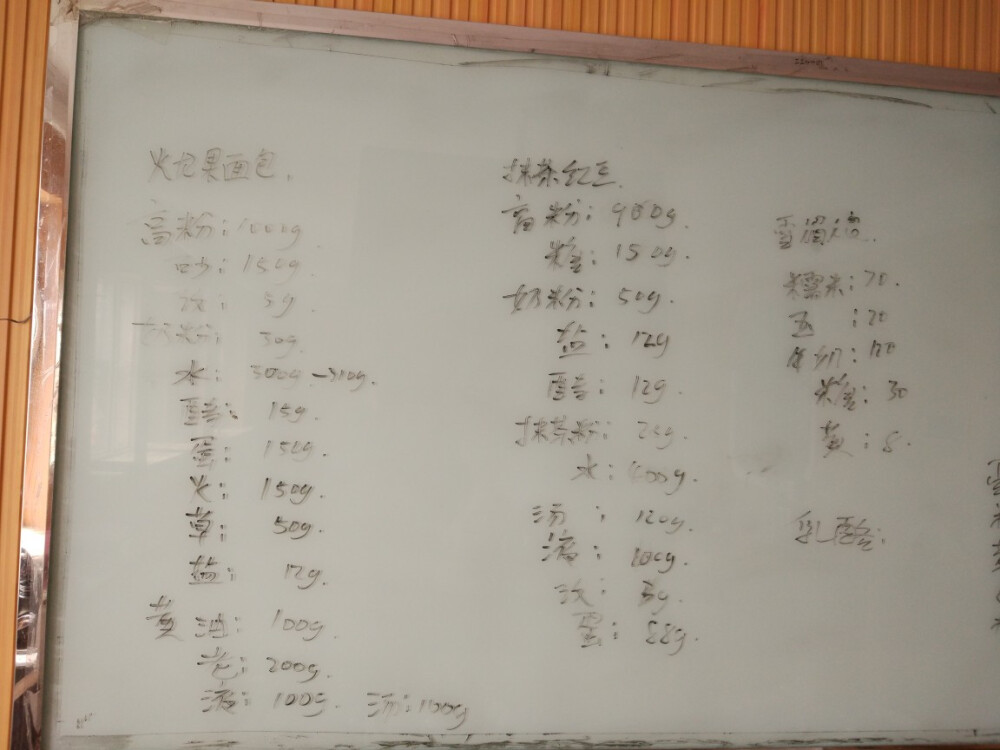 火龙果面包.
高粉:1000g
砂:150g.
改:3g.
奶粉:30g.
水:300g→310g.
酵:15g.
蛋:150g.
火:150g.
草:50g.
盐:12g.
黄油:100g.
老:200g.
液:100g. 汤:100g
抹茶红豆.
高粉:900g.
糖:150g.
奶粉:50g.
盐:12g
酵:12g.
抹茶粉:25g.
水:600g.
汤:120g.
液:100g.
改:3g.
蛋:88g.
雪媚娘.
糯米:70.
玉:20
牛奶:120
糖:30
黄:8.
乳酪: